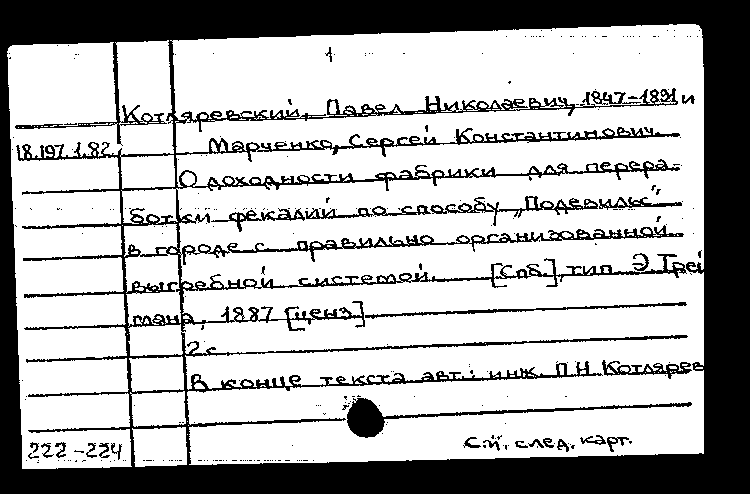 1
Котляревский, Павел Николаевич, 1847-1891 и
18.197.1.82. Марченко, Сергей Константинович.
О доходности фабрики для перера-
ботки фекалий по способу „Подевильс"
в городе с правильно организованной
выгребной системой. [Спб.], тип. Э. Трей
мана, 1887 [ценз.]
2 с.
В конце текста авт.: инж. П.Н. Котлярев
222-224
См. след. карт.